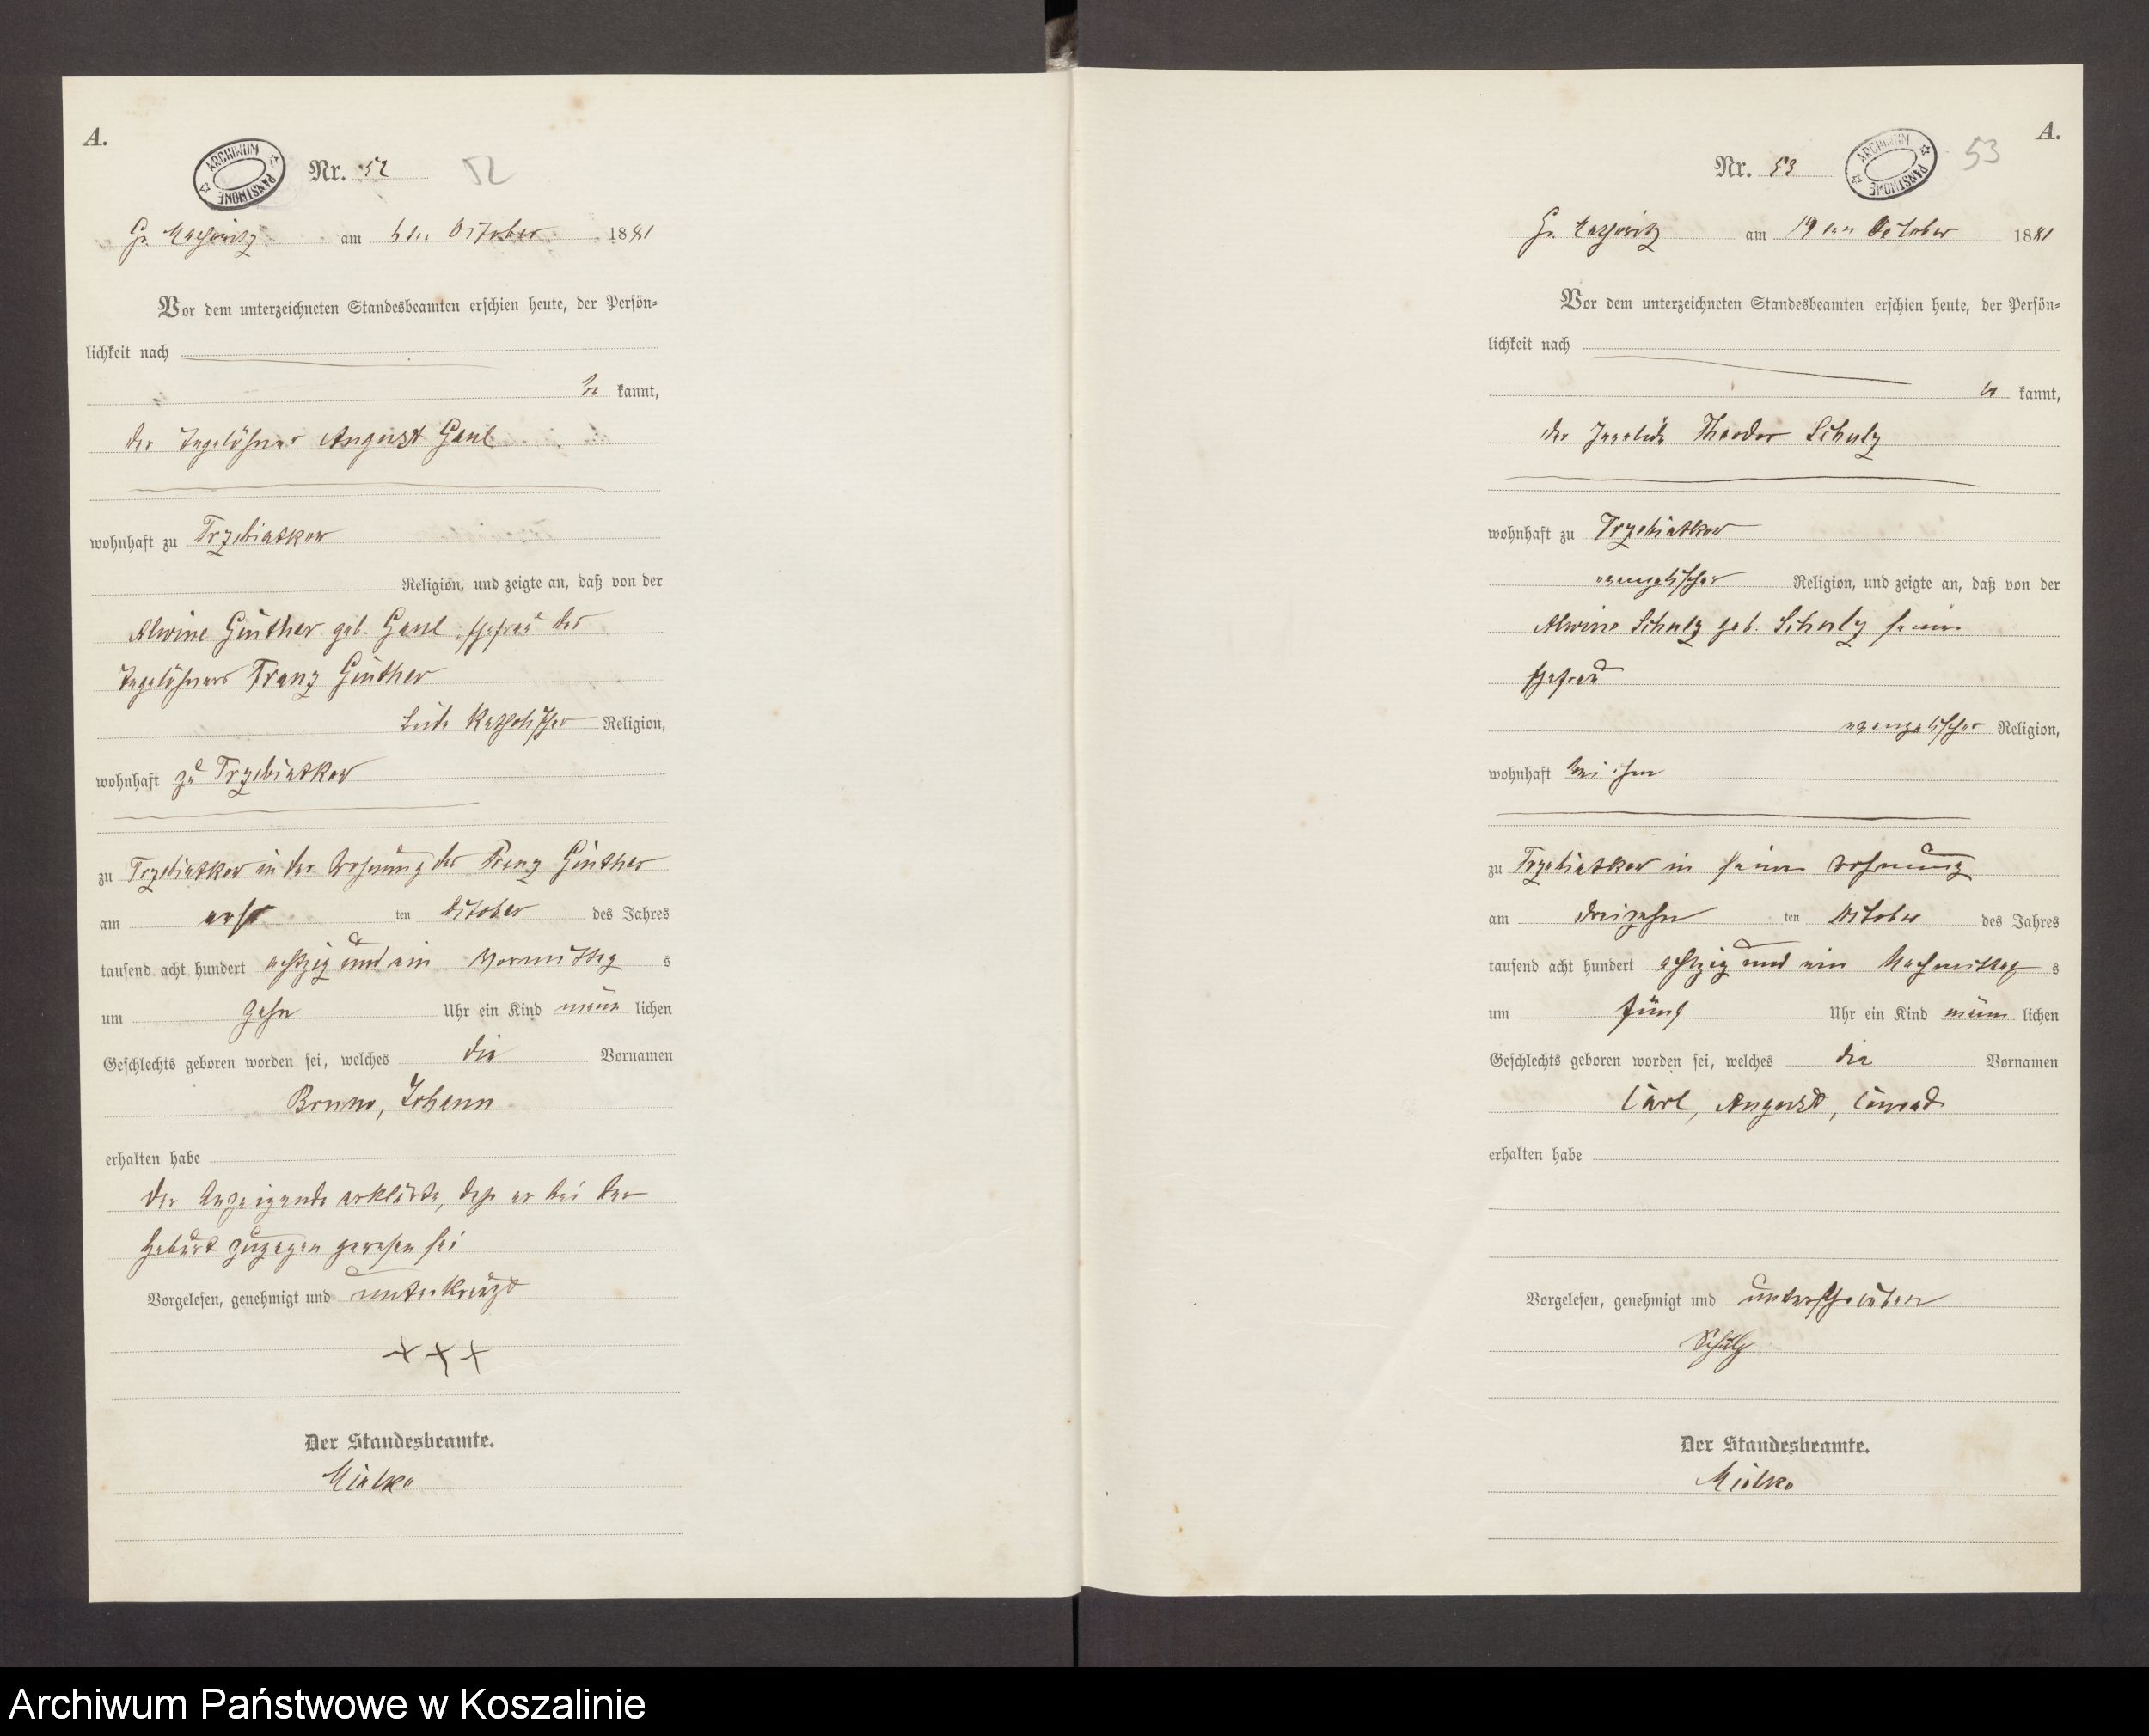 A.
ARCHIWUM PAŃSTWOWE
Nr. 52
52
Gr. Massowitz am 6ten October 1881
Vor dem unterzeichneten Standesbeamten erschien heute, der Persön=
lichkeit nach
be kannt,
der Tagelöhner August Gaul
wohnhaft zu Trzebiatkow
Religion, und zeigte an, daß von der
Alwine Günther geb. Gaul Ehefrau des
Tagelöhners Franz Günther
beide katholischer Religion,
wohnhaft zu Trzebiatkow
zu Trzebiatkow in der Wohnung des Franz Günther
am ten October des Jahres
tausend acht hundert achtzig und ein Vormittag s
um zehn Uhr ein Kind männ lichen
Geschlechts geboren worden sei, welches die Vornamen
Bruno, Johann
erhalten habe
Der Anzeigende erklärte, daß er bei der
Geburt zugegen gewesen sei
Vorgelesen, genehmigt und unterkreuzt
+++
Der Standesbeamte.
Mielke
A.
ARCHIWUM PAŃSTWOWE
Nr. 53
53
Gr. Massowitz am 19ten October 1881
Vor dem unterzeichneten Standesbeamten erschien heute, der Persön=
lichkeit nach
be kannt,
der Invalide Theodor Schulz
wohnhaft zu Trzebiatkow
evangelischer Religion, und zeigte an, daß von der
Alwine Schulz geb. Schulz seiner
Ehefrau
evangelischer Religion,
wohnhaft bei ihm
zu Trzebiatkow in seiner Wohnung
am dreizehn ten October des Jahres
tausend acht hundert achtzig und ein Nachmittag s
um fünf Uhr ein Kind männ lichen
Geschlechts geboren worden sei, welches die Vornamen
Carl, August, Conrad
erhalten habe
Vorgelesen, genehmigt und unterschrieben
Schulz
Der Standesbeamte.
Mielke
Archiwum Państwowe w Koszalinie